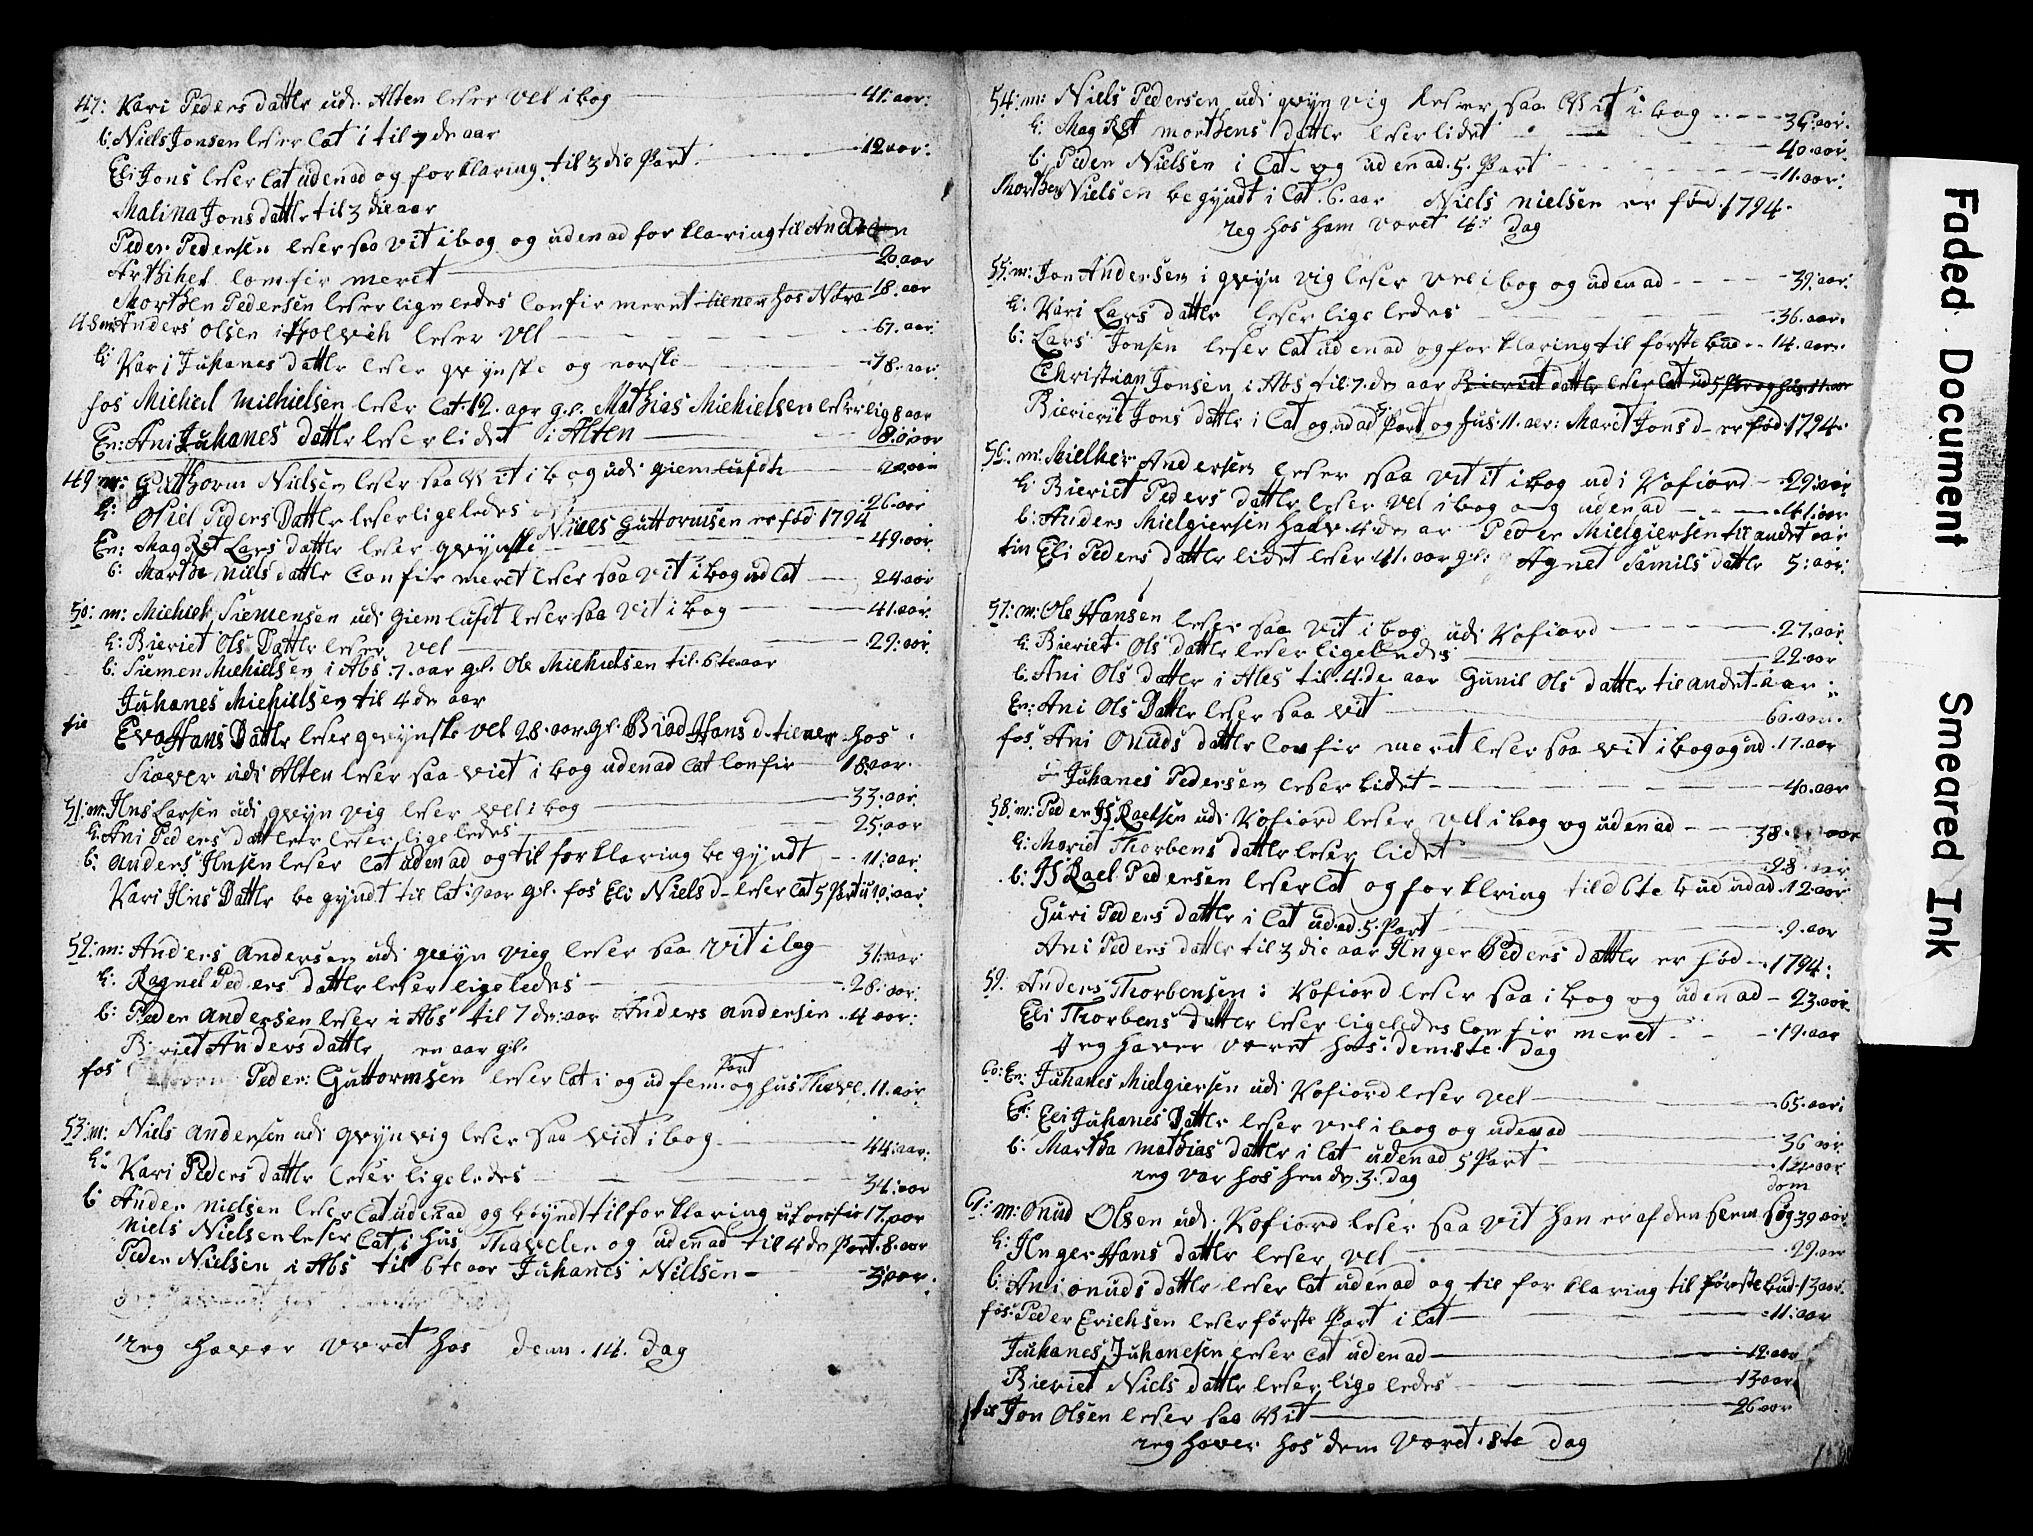 47: Kari Peders dattr udi Alten leser vel i bog 41: aar:
b: Niels Jonsen leser Cat i til 7 de aar
Eli Jons leser Cat udenad og forklaring til 3 die Part. 12 aar:
Malina Jons dattr til 3 die aar
Peder Pedersen leser saa vit i bog og udenad forklaring til Anden
Arthihel Confirmeret 20 aar
Morthen Pedersen leser ligeledes Confirmeret tiener hos 18. aar
48 m: Anders Olsen i Holvik leser vel 67. aar:
k: Kari Juhanes dattr leser qvynske og norske 78. aar:
fos Michiel Michielsen leser Cat. 12. aar gl. Mathias Michielsen leser lig 8 aar
En: Ani Juhanes dattr leser lidet i Alten
49 m: Guthorm Nielsen leser saa Vit i bog udi giemlufdt
k: Peders Dattr leser ligeledes 26. aar
Niels Guttormsen er fød 1794
En: Magret Lars dattr leser qvynske 49. aar
b: Marthe niels dattr Confirmeret leser saa vit i bog ud Cat 24. aar
50: m: Michiel Siemensen udi Giemlufdt leser saa vit i bog 41. aar
k: Bieriet Ols Dattr leser vel 29: aar
b: Siemen Michielsen i Abs. 7. aar gl. Ole Michielsen til 6te aar
Juhanes Michielsen til 4 de aar
tie Eva Hans Dattr leser qvynske vel 28. aar gl. Hans d. tiener hos
Siover udi Alten leser saa viet i bog udenad Cat Confir 18. aar.
51: m: Hns Larsen udi qvyn vig leser vel i bog 33: aar
k: Ani Peders dattler leser ligeledes 25: aar
b: anders Hnsen leser Cat udenad og til forklaring begyndt 11: aar:
Kari Hns Dattr begyndt til Cat aar gl. fos Eli Niels d. leser Cat 5 Part 10. aar
52: m: Anders andersen udi qvyn vieg leser saa vit i bog 31: aar
k: Ragnel Peders dattr leser ligeledes 28: aar:
b: Peder andersen leser i Abs til 7 de: aar Anders andersen 4 aar:
Bieriet Anders dattr en aar gl.
fos Peder: Guttormsen leser Cat i og ud fem: Part og hus Thavl. 11. aar
53: m: Niels andersen udi qvyn vig leser saa viet i bog 44: aar:
k: Kari Peders dattr leser ligeledes 34: aar
b: Ander nielsen leser Cat udenad og begyndt til forklaring uConfir 17. aar
niels Nielsen leser Cat i hus Thavelen og udenad til 4 de Part. 8. aar
Peder Nielsen i Abs til 6 te aar Juhanes Nielsen 3 aar.
ieg haver været hos denn. 14. dag
54: m: Niels Pedersen udi qvyn vig leser saa Vit i bog 36: aar.
k: Magret morthens dattr leser lidet 40. aar.
b: Peder Nielsen i Cat og udenad. 5. Part 11. aar:
Morthen Nielsen begyndt i Cat. 6. aar Niels nielsen er fød. 1794.
ieg hos ham været 4: dag
55: m: Jon Andersen i qvyn vig leser vel i bog og udenad 39: aar:
k: Kari Lars dattr leser ligeledes 36. aar.
b: Lars Jonsen leser Cat udenad og forklaring til første bud 14. aar.
Christian Jonsen i Abs til 7. de aar Bieriet dattr leser Cat ud 5 Part og hus 11. aar
Bierierit Jons dattr i Cat og udad 5 Part og hus. 11. aar: Marit Jons d. er fød. 1794.
56: m: Mielker Andersen leser saa vit i bog udi Kofiord 29: aar
k: Bieriet Peders dattr leser vel i bog og udenad 41: aar
b: Anders Mielgiersen Peder Mielgiersen til andet aar
tin Eli Peders dattr lidet leser 41. aar gl: Agnet Samils dattr 5: aar:
57: m: Ole Hansen leser saa vit i bog udi Kofiord 27. aar
k: Bieriet Ols dattr leser ligeledes 22. aar
b: Ani Ols dattr i Abs til 4. de aar Gunil Ols dattr til andet aar:
En: Ani Ols Dattr leser saa vit 60. aar.
fos. Ani Onuds dattr Confirmerit leser saa vit i bog og ud. 17. aar
Juhanes Pedersen leser lidet 40. aar
58: m: Peder JsRaelsen udi Kofiord leser vel i bog og udenad 38. aar
k: Mariet Thorbens dattr leser lidet 28. aar
b: JsRael Pedersen leser Cat og forklring til 6te bud udad. 12. aar
Guri Peders dattr i Cat udad. 5. Part 9. aar
Ani Peders dattr til 3 die aar Hnger Peders dattr er fød 1794:
59. Anders Thorbensen: Kofiord leser saa i bog og udenad 23. aar
Eli Thorbens dattr leser ligeledes Confirmeret 19. aar
Jeg haver været hos: dem 8te. dag
60: En: Juhanes Mielgiersen udi Kofiord leser vel 65. aar:
En: Eli Juhanes Dattr leser vel i bog og udenad 36 aar
b: Martha mathias dattr i Cat udenad 5 Part 12 aar
ieg var hos hende. 3. dag dom
61: m: Onud Olsen udi. Kofiord leser saa vit han er af den 39 aar
k: Hnger Hans dattr leser vel 29. aar
b: Ani onuds dattr leser Cat udenad og til forklaring til første bud. 13 aar.
fos: Peder Erichsen leser første Part i Cat 11: aar
Juhanes Juhanesen leser Cat udenad 12. aar
Bieriet Niels dattr leser ligeledes 13 aar
tie Jon Olsen leser saa Vit 26 aar
ieg haver hos dem været. 8te dag
Faded Document
Smeared Ink